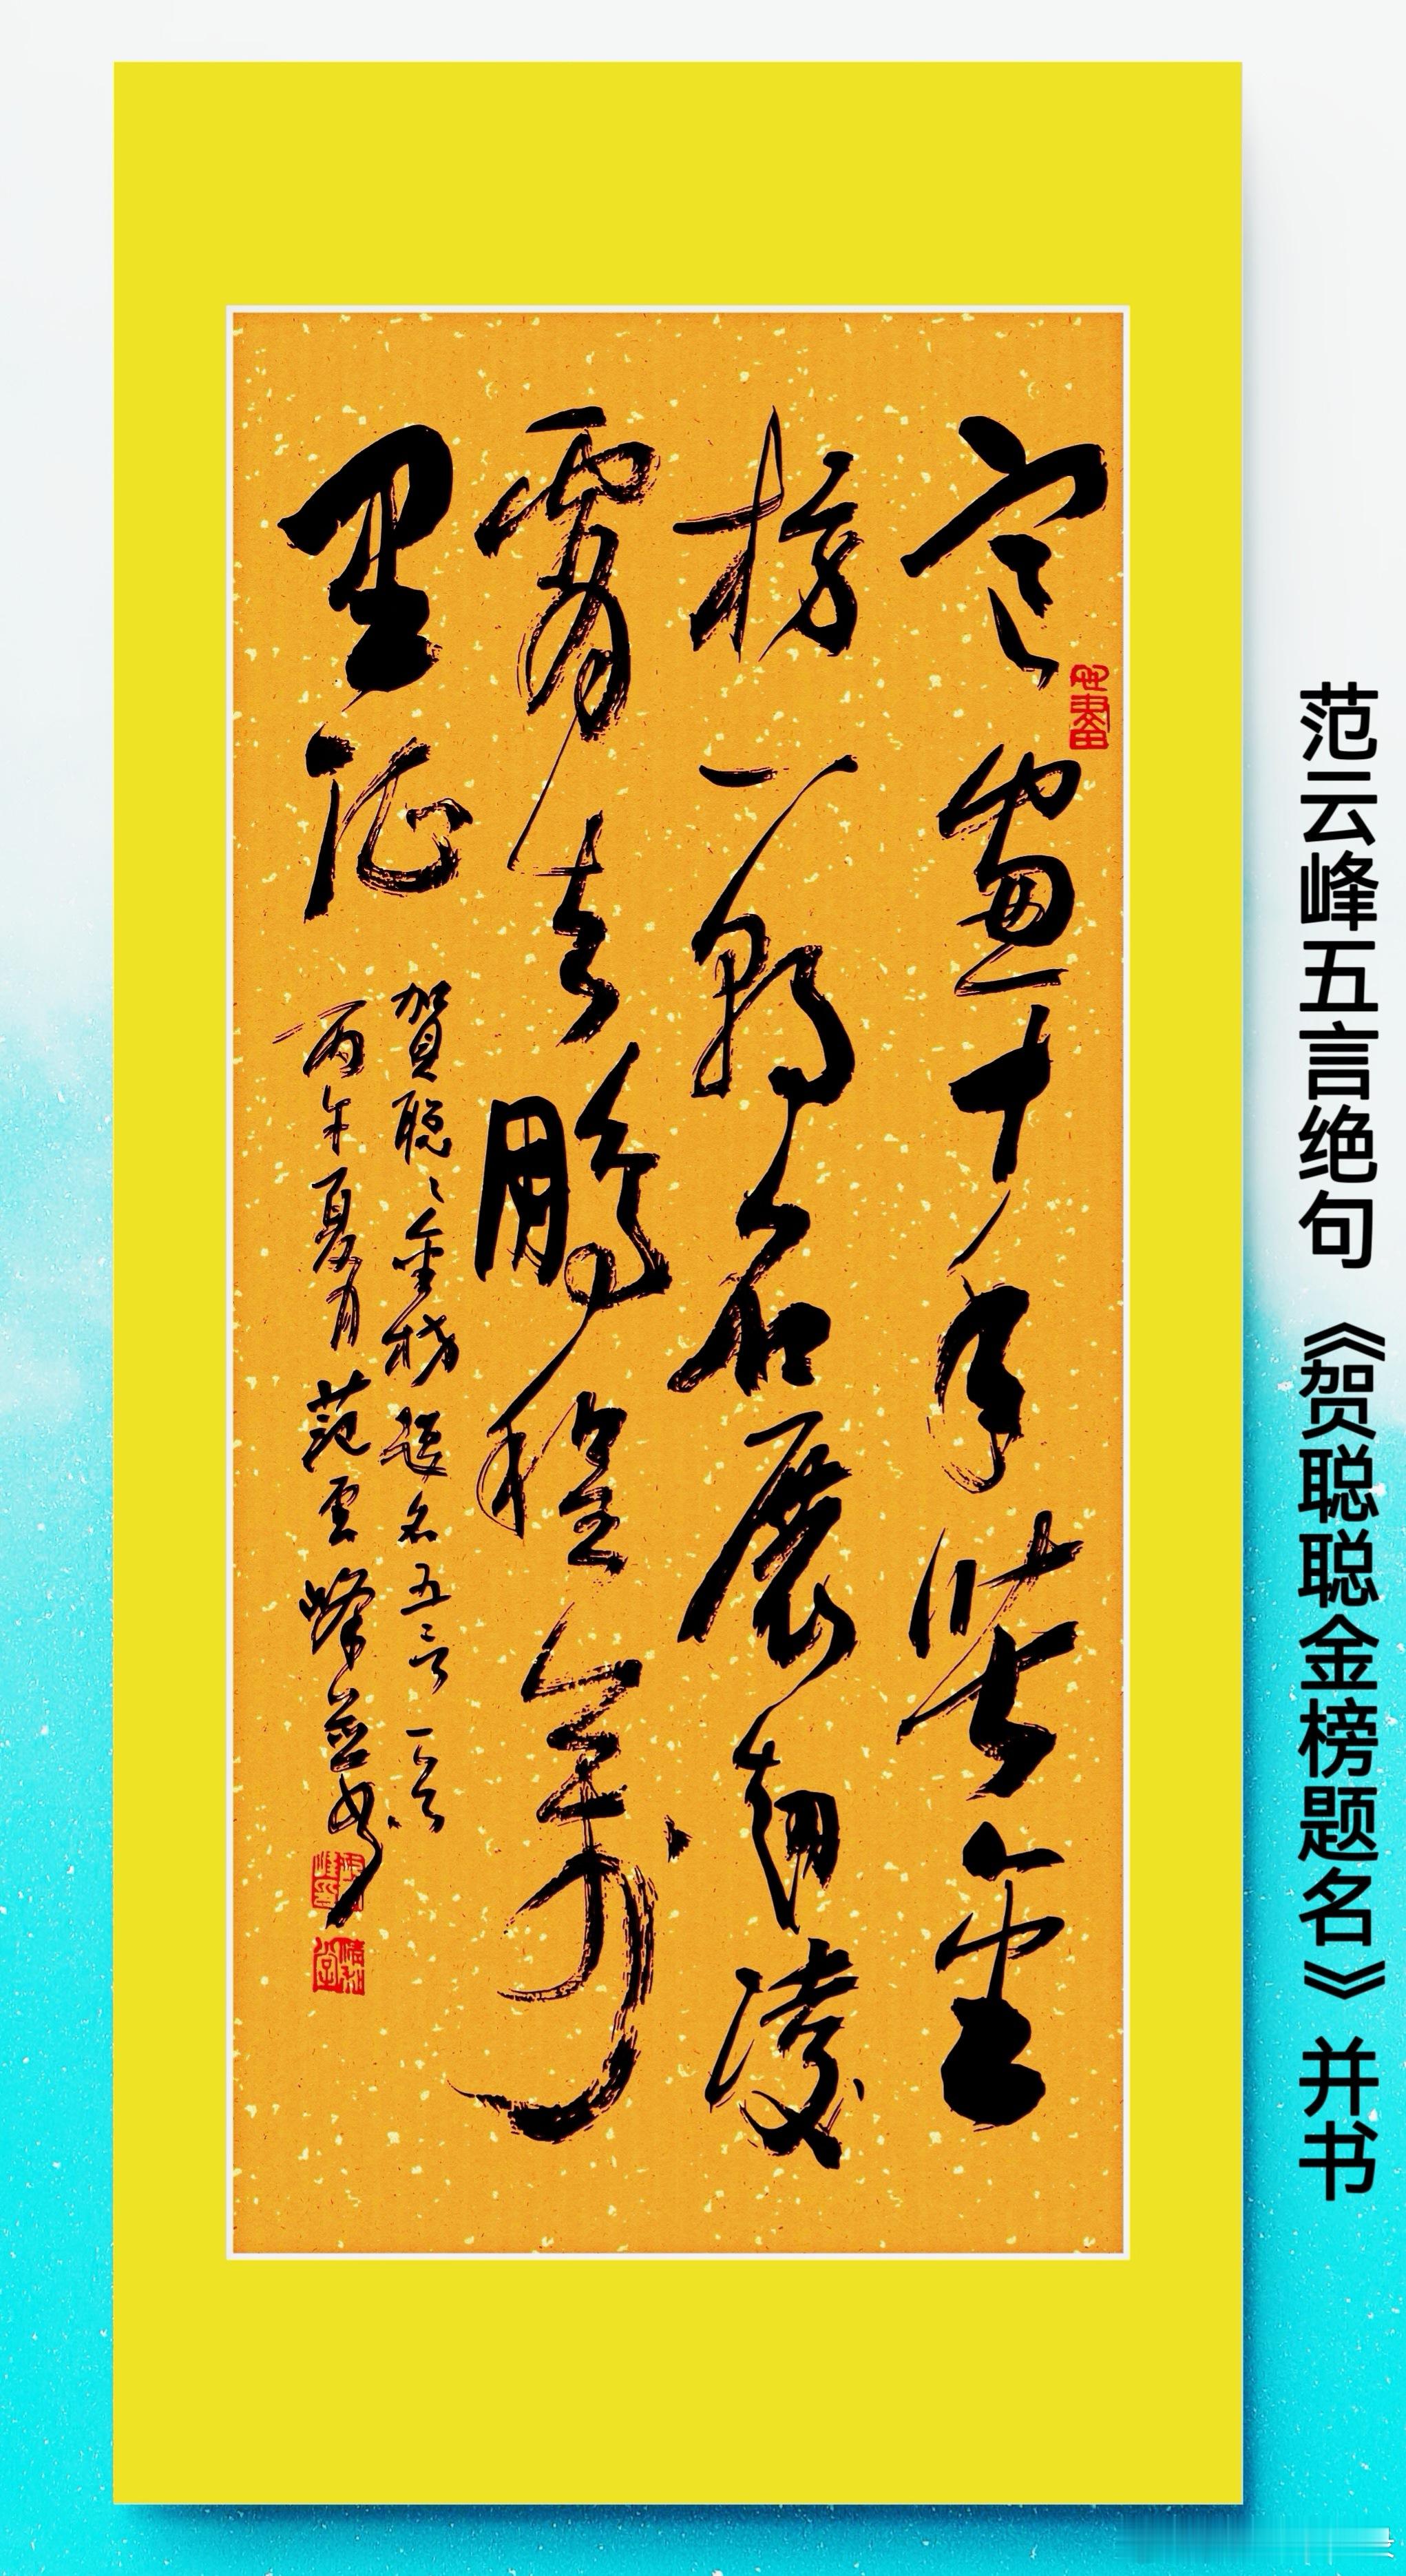 寒窗十年金
榜一朝名展翅凌
霄去鵬程萬
里征
賀聪〻金榜题名五言一首
丙午夏月范雲峰並书
范云峰五言绝句《贺聪聪金榜题名》并书